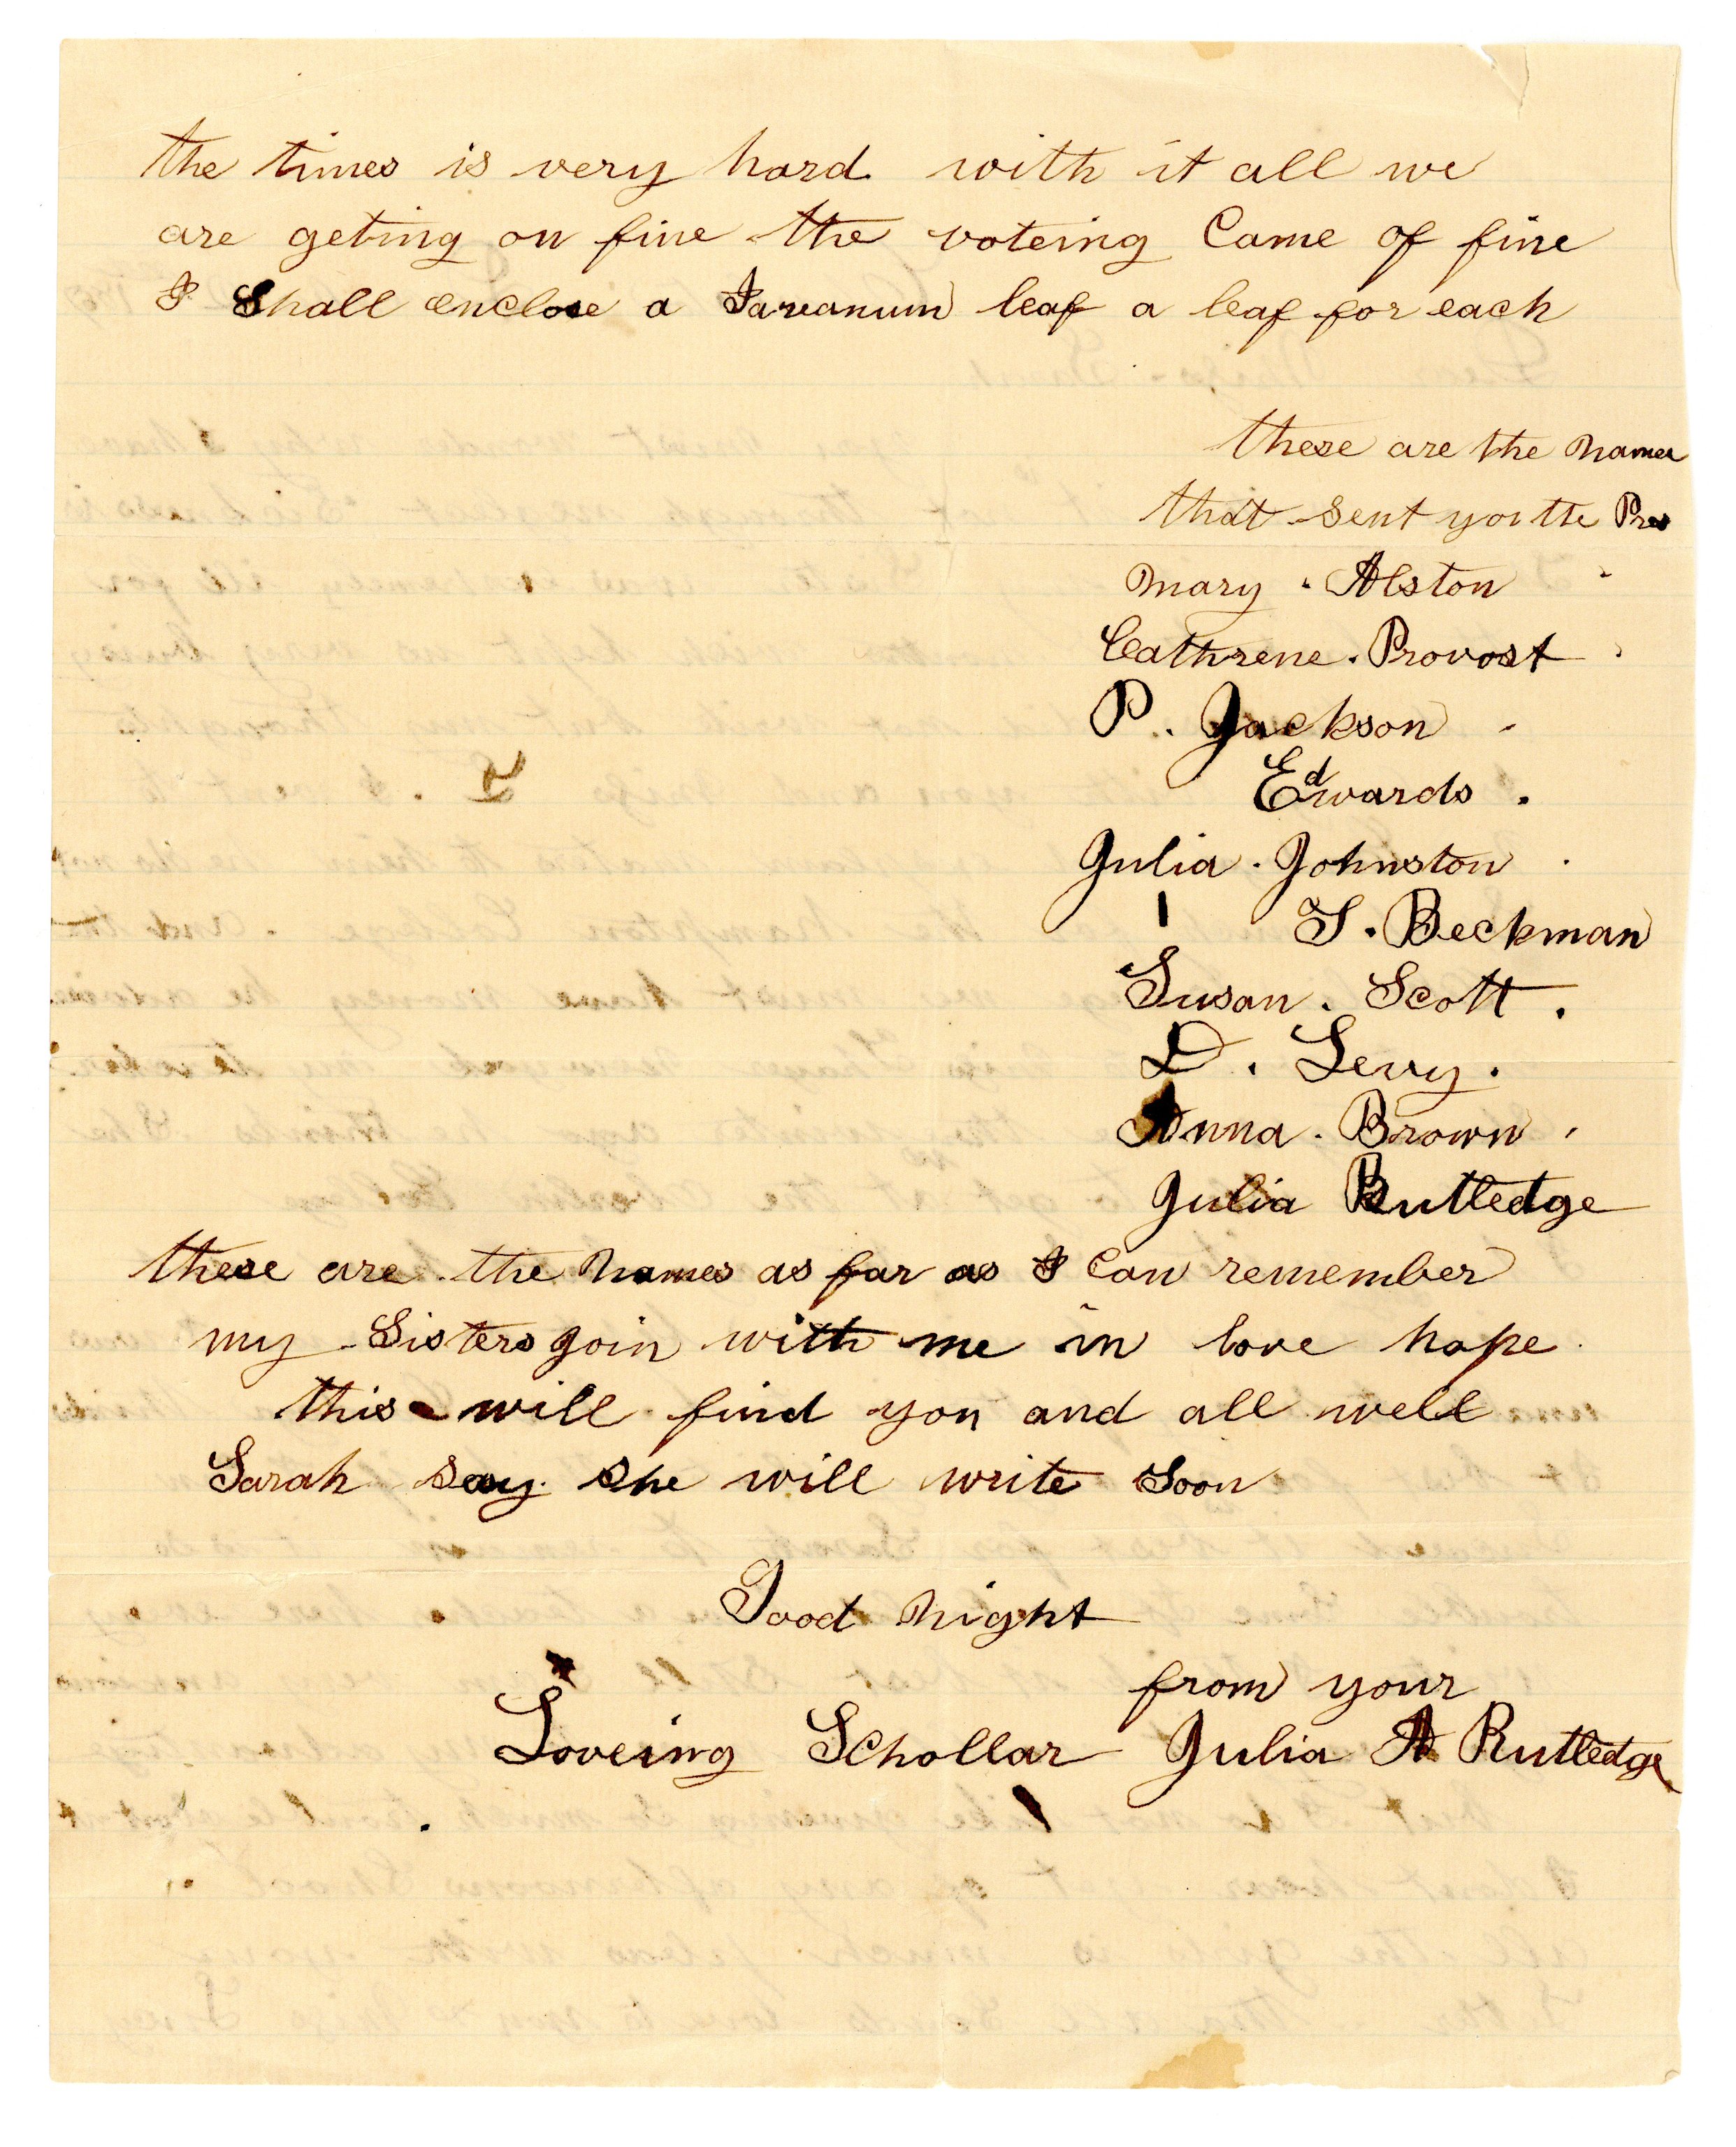 the times is very hard with it all we
are geting on fine the voteing Came of fine
I Shall enclose a Jaranum leaf a leaf for each
these are the names
that sent you the Pres
Mary . Alston
Cathrene . Provost
P. Jackson
Edwards .
Julia . Johnston
S. Beckman
Susan . Scott .
D. Levy .
Anna . Brown
Julia Rutledge
these are the names as far as I Can remember
my Sisters join with me in love hope
this will find you and all well
Sarah say she will write Soon
Good night
from your
Loveing Schollar Julia A Rutledge